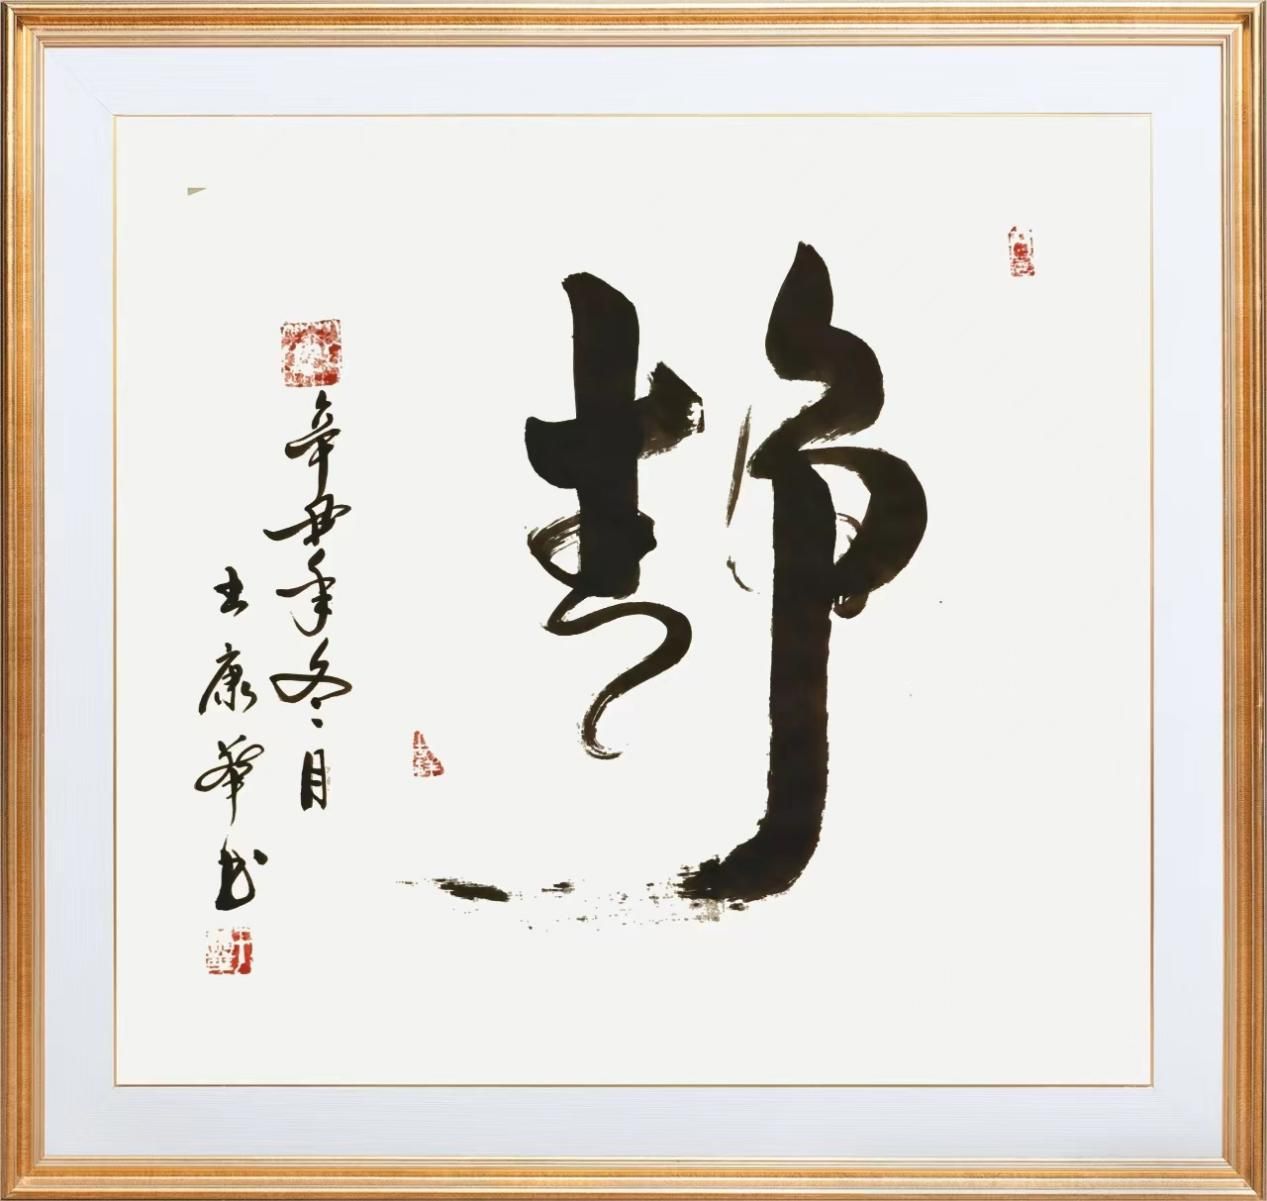 静
辛丑年冬月
王康华书